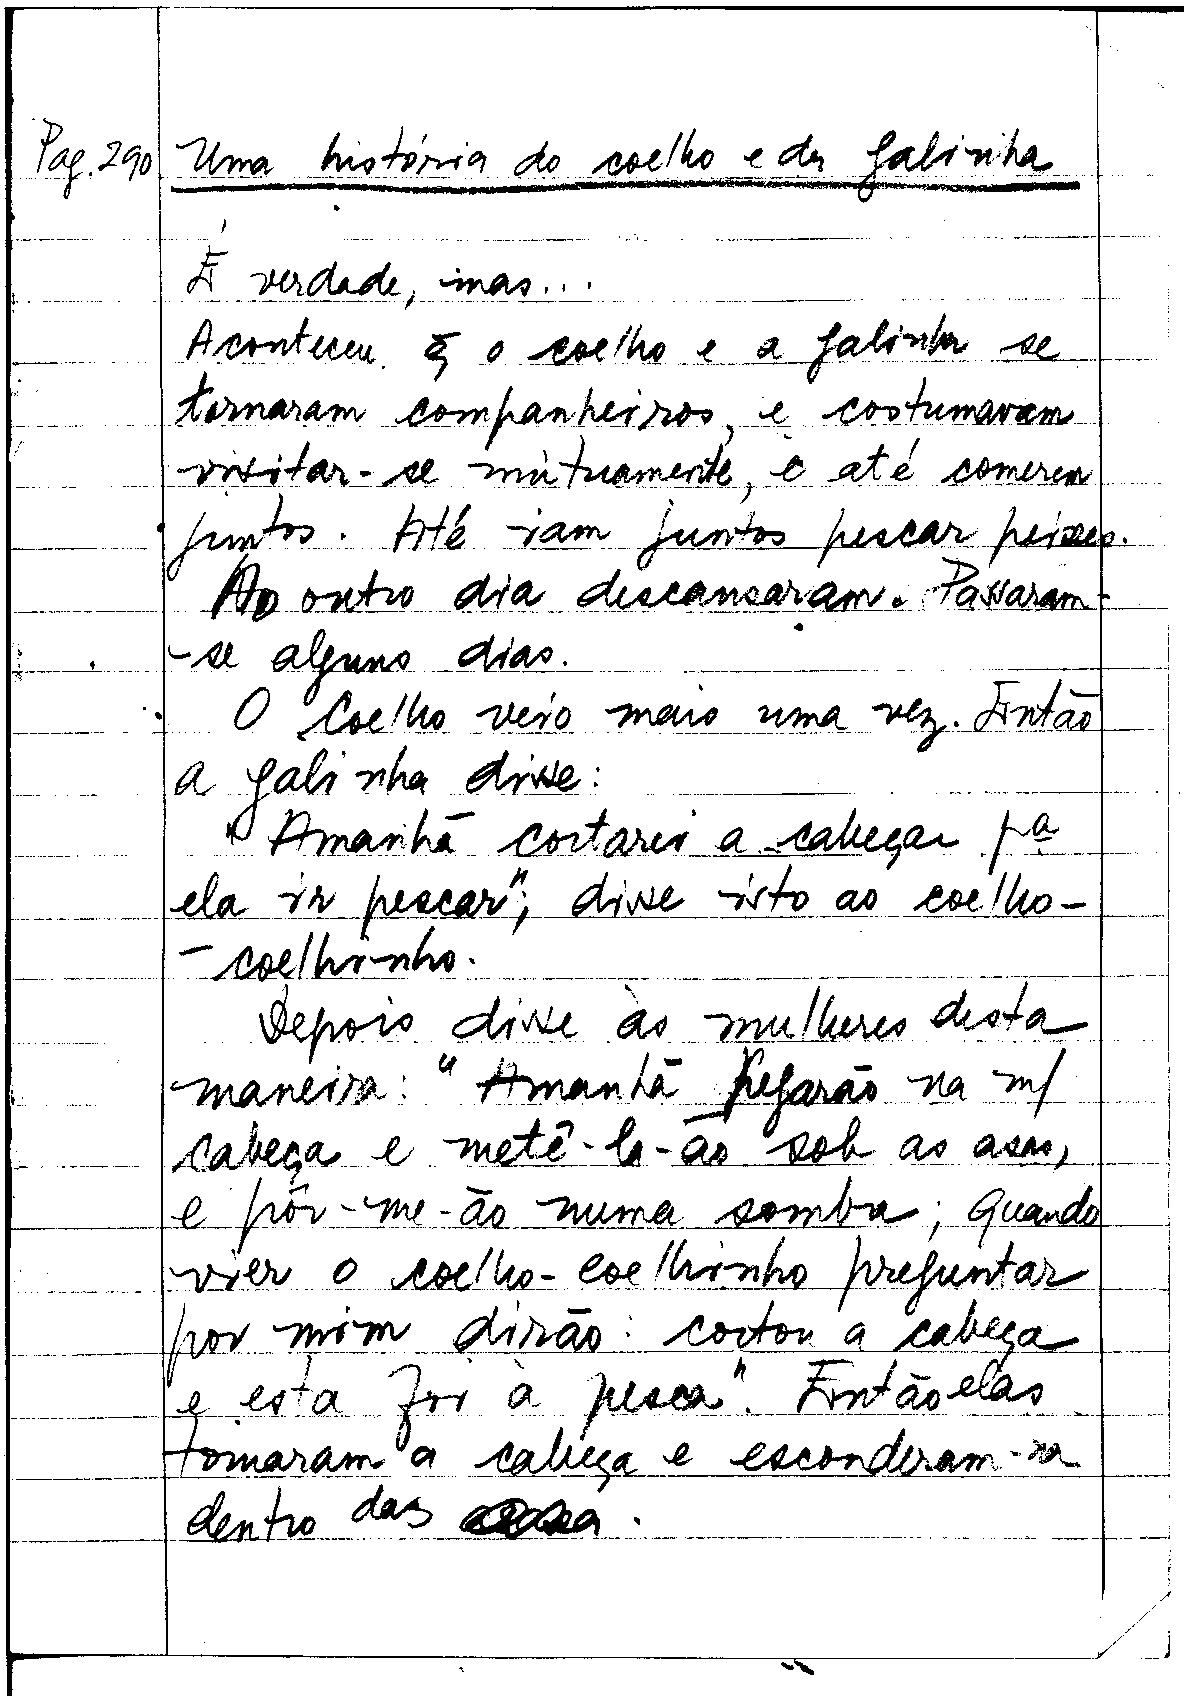 Pag. 290 Uma história do coelho e da galinha
É verdade, mas...
Aconteceu q̃ o coelho e a galinha se
tornaram companheiros, e costumavam
visitar-se mùtuamente, e até comerem
juntos. Até iam juntos pescar peixes.
Ao outro dia descansaram. Passaram-
-se alguns dias.
O Coelho veio mais uma vez. Então
a galinha disse:
"Amanhã cortarei a cabeça pª
ela ir pescar"; disse isto ao coelho-
-coelhinho.
Depois disse às mulheres desta
maneira: "Amanhã pegarão na m/
cabeça e metê-la-ão sob as asas,
e pôr-me-ão numa sombra; quando
vier o coelho-coelhinho preguntar
por mim dirão: cortou a cabeça
e esta foi à pesca". Então elas
tomaram a cabeça e esconderam-na
dentro das